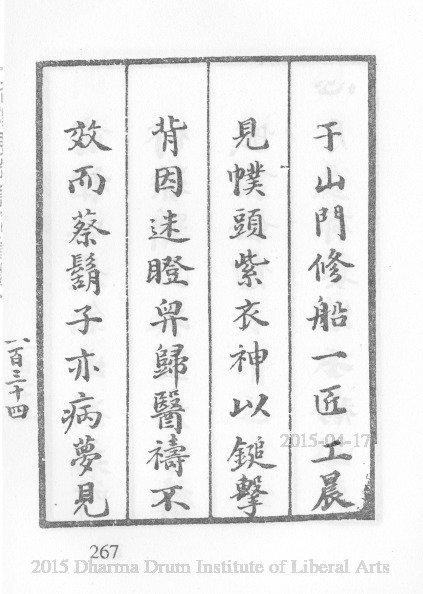 于山門修船一匠工晨
見幞頭紫衣神以鎚擊
背因迷瞪舁歸醫禱不
效而蔡鬍子亦病夢見
一百三十四
267
2015-04-17
2015 Dharma Drum Institute of Liberal Arts